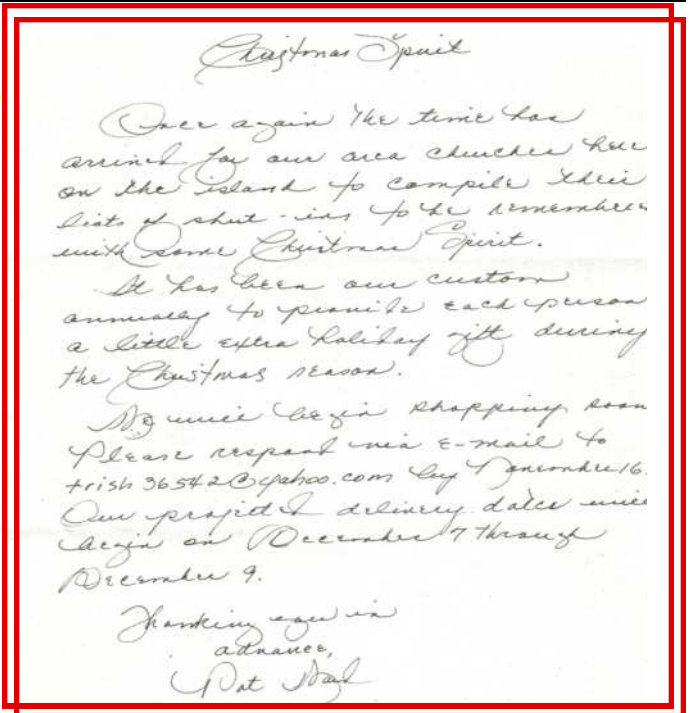 Christmas Spirit
Once again the time has
arrived for our area churches here
on the island to compile their
lists of shut-ins to be remembered
with some Christmas Spirit.
It has been our custom
annually to provide each person
a little extra holiday gift during
the Christmas season.
We will begin shopping soon
Please respond via e-mail to
trish36542@yahoo.com by November 16.
Our projected delivery dates will
begin on December 7 through
December 9.
Thanking you in
advance,
Pat